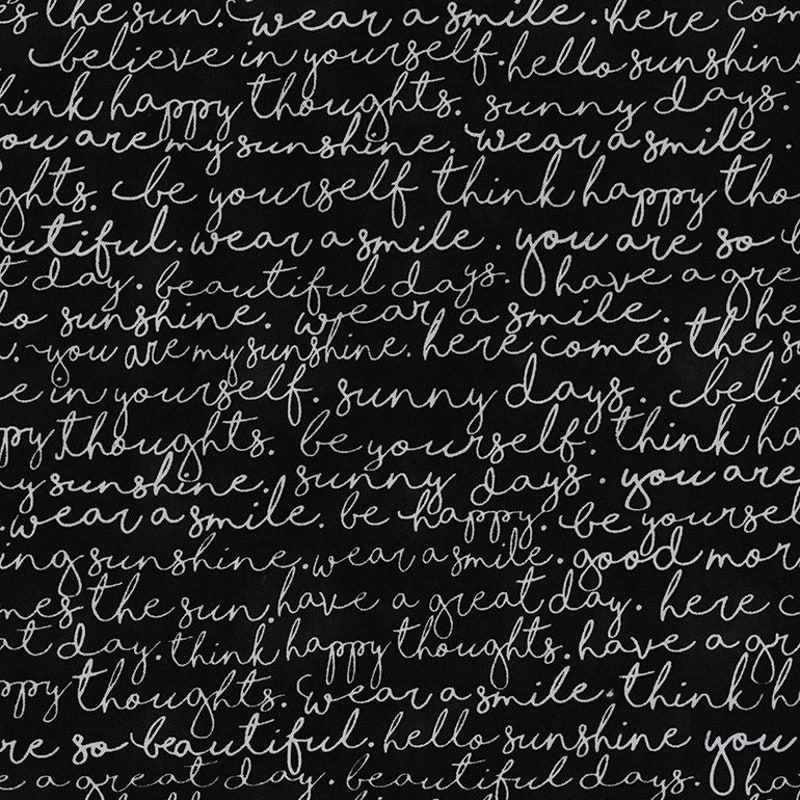 s the sun. wear a smile. here com
believe in yourself. hello sunshin
hink happy thoughts. sunny days.
ou are my sunshine. wear a smile.
ghts. be yourself think happy tho
autiful. wear a smile. you are so b
t day. beautiful days. have a gre
lo sunshine. wear a smile. he
. you are my sunshine. here comes the s
e in yourself. sunny days. belie
py thoughts. be yourself. think ha
y sunshine. sunny days. you are
. wear a smile. be happy. be yoursel
ing sunshine. wear a smile. good mor
mes the sun. have a great day. here c
at day. think happy thoughts. have a gr
ppy thoughts. wear a smile. think h
re so beautiful. hello sunshine you
e a great day. beautiful days. ha